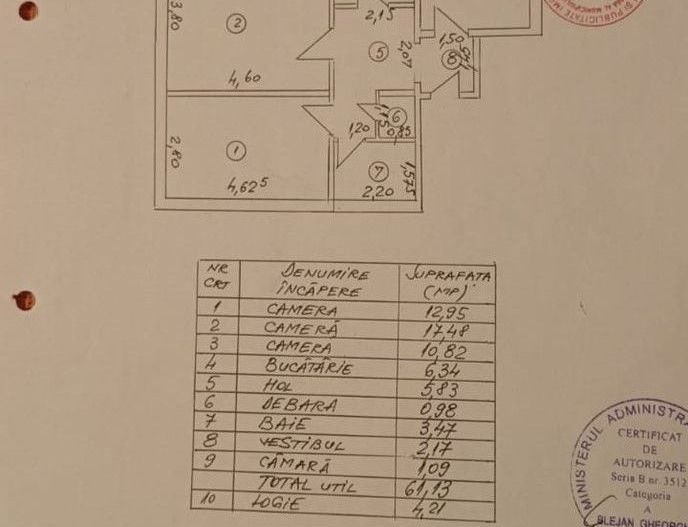 3,80
2
4,60
2,15
5
2,07
1,50
8
1
2,80
4,625
1,20
1,15
6
0,85
7
2,20
1,575
NR CRT DENUMIRE ÎNCĂPERE SUPRAFAȚA (MP)
1 CAMERA 12,95
2 CAMERĂ 17,48
3 CAMERA 10,82
4 BUCĂTĂRIE 6,34
5 HOL 5,83
6 DEBARA 0,98
7 BAIE 3,47
8 VESTIBUL 2,17
9 CĂMARĂ 1,09
TOTAL UTIL 61,13
10 LOGIE 4,21
MINISTERUL ADMINISTR
CERTIFICAT
DE
AUTORIZARE
Seria B nr. 3512
Categoria
A
BLEJAN GHEORG